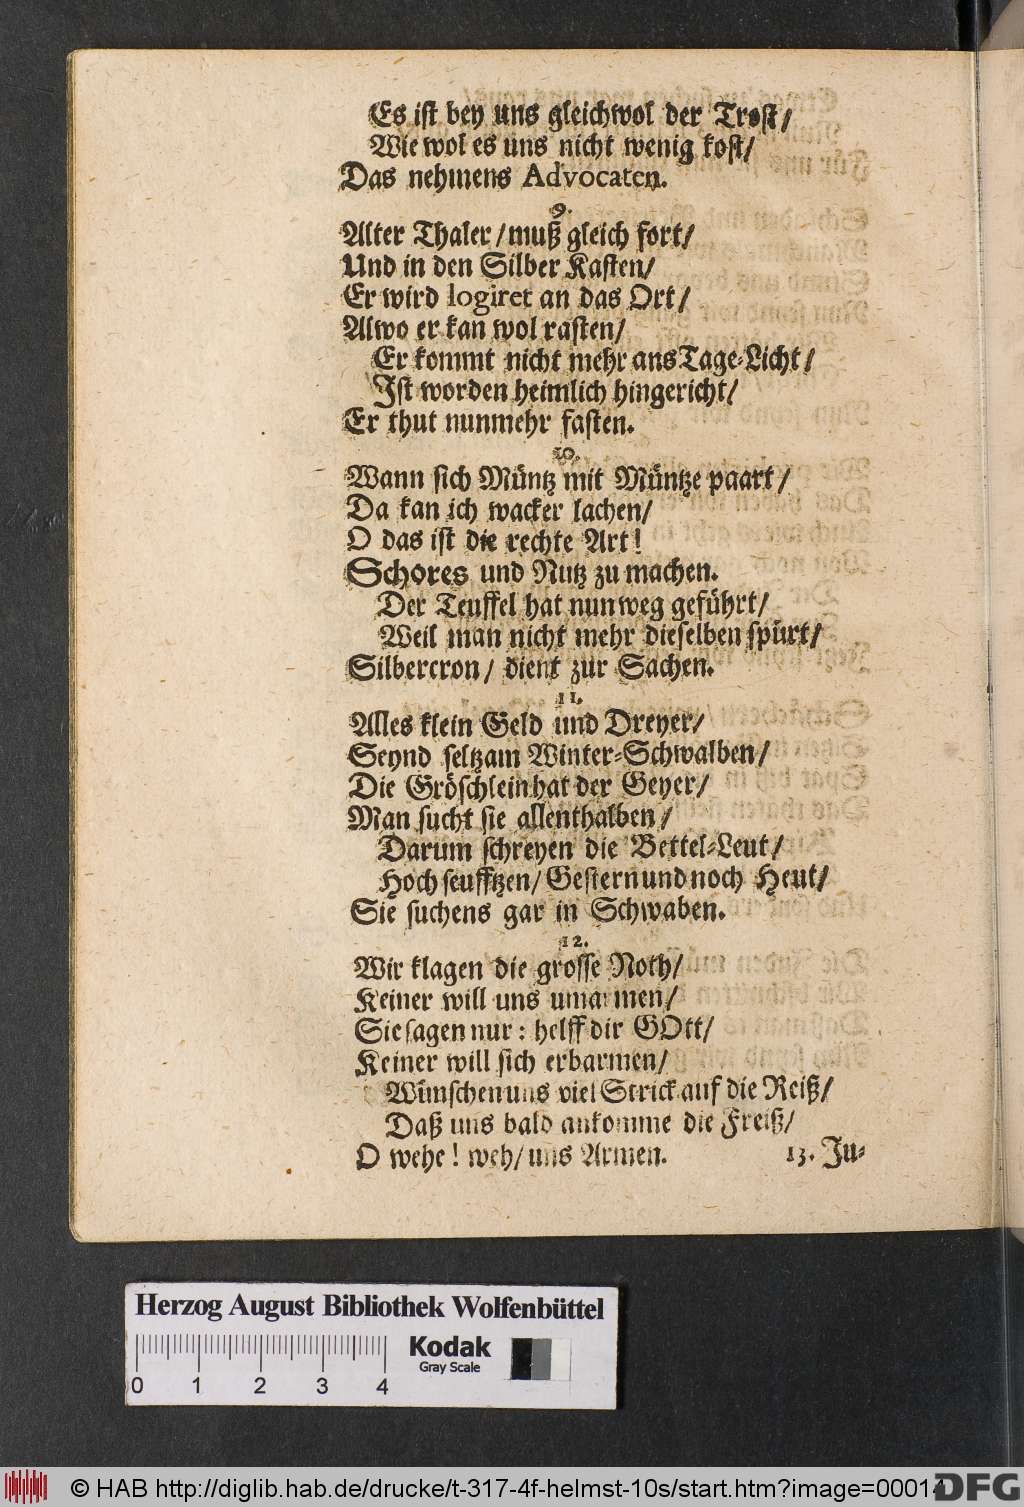 Es ist bey uns gleichwol der Trost/
Wie wol es uns nicht wenig kost/
Das nehmens Advocaten.
9.
Alter Thaler/muß gleich fort/
Und in den Silber Kasten/
Er wird logiret an das Ort/
Alwo er kan wol rasten/
Er kommt nicht mehr ans Tage-Licht/
Ist worden heimlich hingericht/
Er thut nunmehr fasten.
10.
Wann sich Müntz mit Müntze paart/
Da kan ich wacker lachen/
O das ist die rechte Art!
Schores und Nutz zu machen.
Der Teuffel hat nun weg geführt/
Weil man nicht mehr dieselben spürt/
Silbercron/ dient zur Sachen.
11.
Alles klein Geld und Dreyer/
Seynd seltzam Winter-Schwalben/
Die Gröschlein hat der Geyer/
Man sucht sie allenthalben/
Darum schreyen die Bettel-Leut/
Hoch seufftzen/ Gestern und noch Heut/
Sie suchens gar in Schwaben.
12.
Wir klagen die grosse Noth/
Keiner will uns umarmen/
Sie sagen nur: helff dir GOtt/
Keiner will sich erbarmen/
Wünschen uns viel Strick auf die Reiß/
Daß uns bald ankomme die Freiß/
O wehe! weh/ uns Armen. 13. Ju-
Herzog August Bibliothek Wolfenbüttel
Kodak
Gray Scale
0 1 2 3 4
© HAB http://diglib.hab.de/drucke/t-317-4f-helmst-10s/start.htm?image=00014
DFG